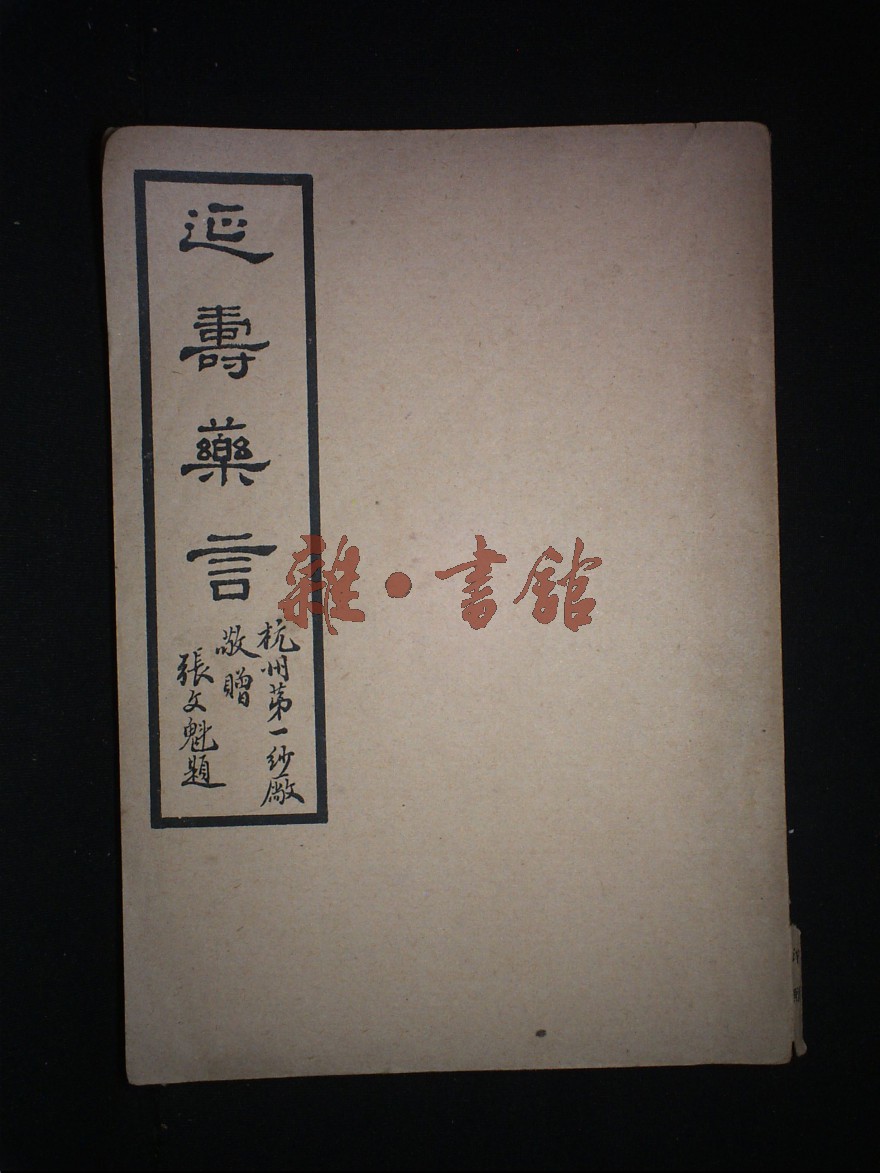 延壽藥言
杭州第一紗廠
敬贈
張文魁題
雜·書館